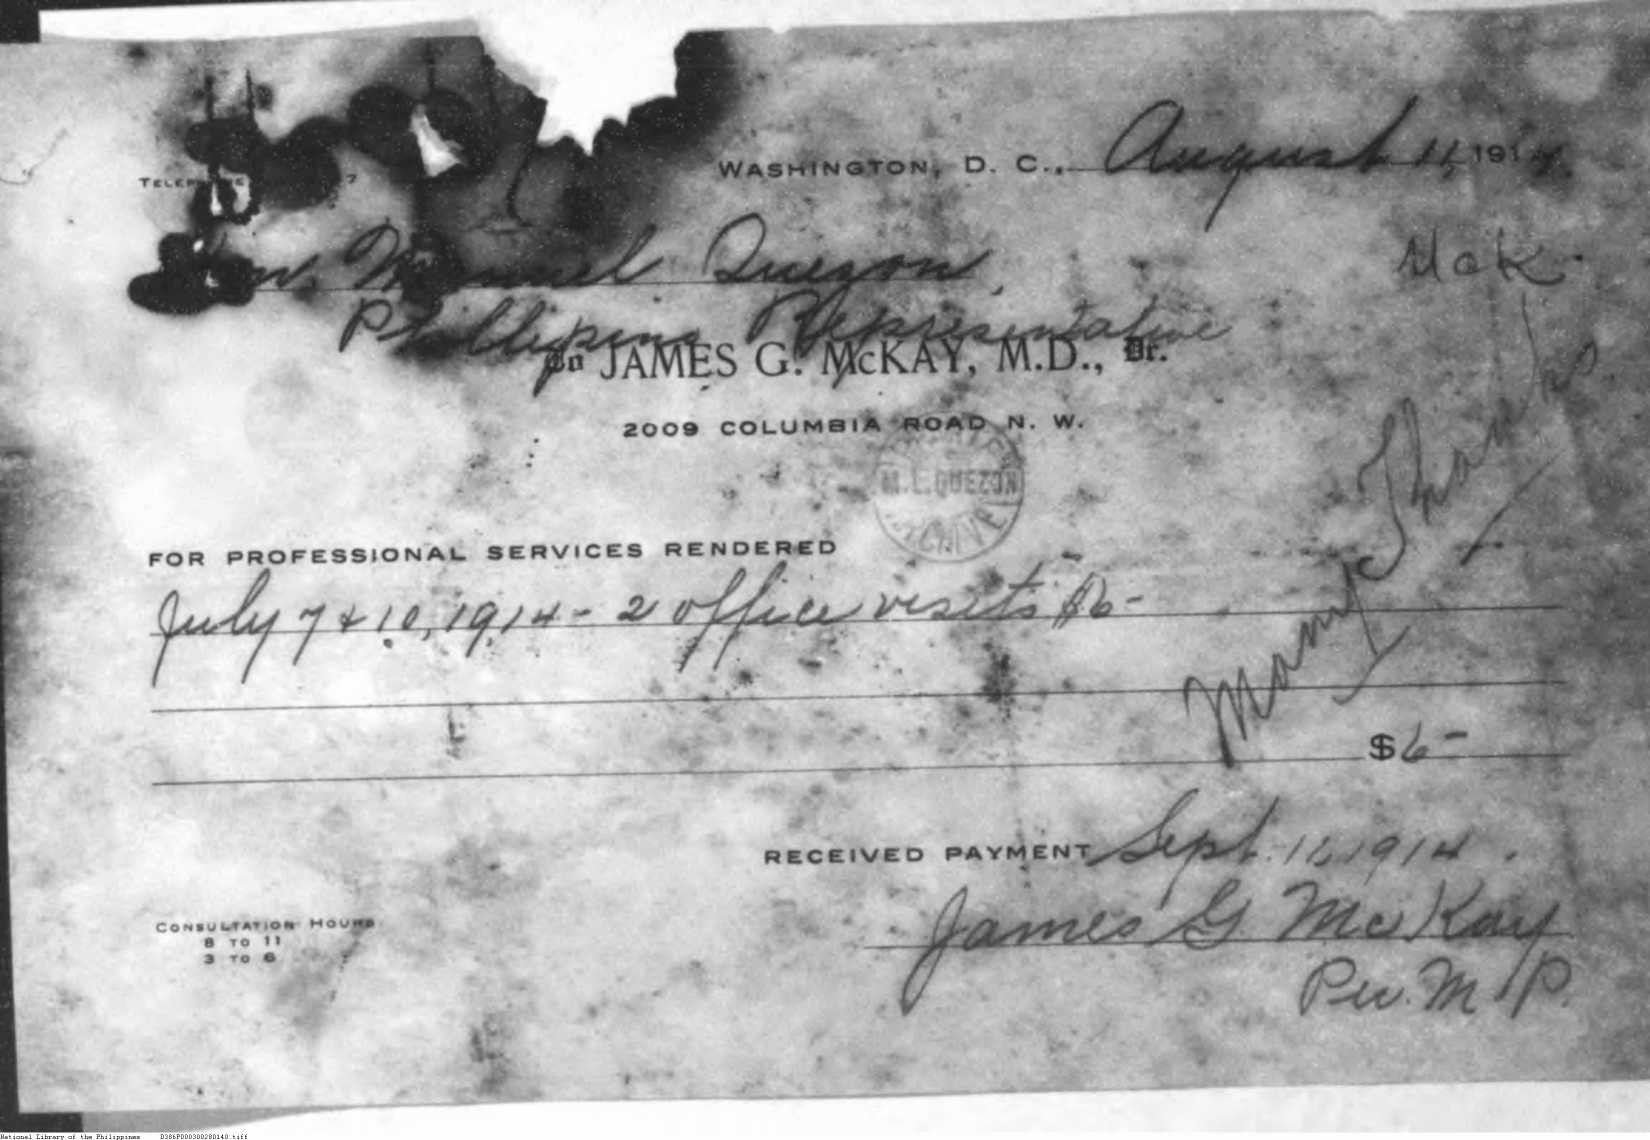 WASHINGTON, D. C., August 11, 1914.
TELEPHONE 7
Hon. Manuel Quezon,
McK.
Phillipine Representative
To JAMES G. McKAY, M.D., Dr.
2009 COLUMBIA ROAD N. W.
M. L. QUEZON
ARCHIVES
FOR PROFESSIONAL SERVICES RENDERED
July 7 & 10, 1914 - 2 office visits $6-
Many Thanks
$6-
RECEIVED PAYMENT Sept. 11, 1914.
James G. McKay
Per. M. P.
CONSULTATION HOURS
8 TO 11
3 TO 6
National Library of the Philippines D386P000300280140.tiff